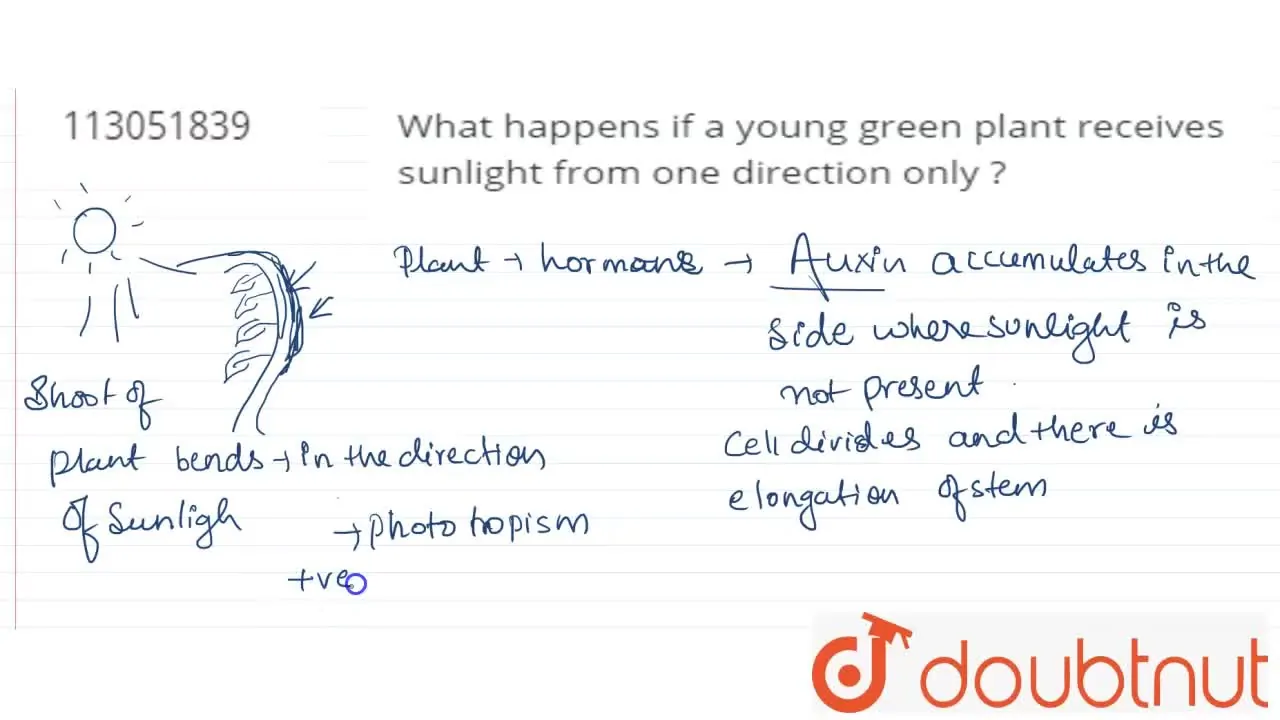 113051839
What happens if a young green plant receives
sunlight from one direction only ?
Plant → hormones → Auxin accumulates in the
side where sunlight is
not present
Cell divides and there is
elongation of stem
Shoot of
plant bends → in the direction
of Sunligh
→ phototropism
+ve
doubtnut